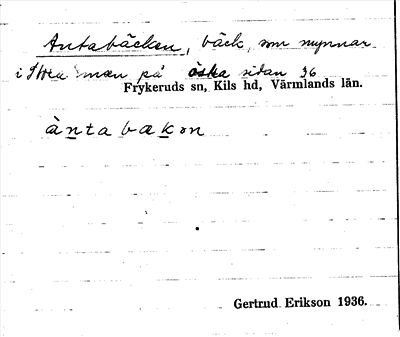 Antabäcken, bäck, som mynnar
i Stora man på östra sidan 36
Frykeruds sn, Kils hd, Värmlands län.
àntabækɔn
Gertrud Erikson 1936.